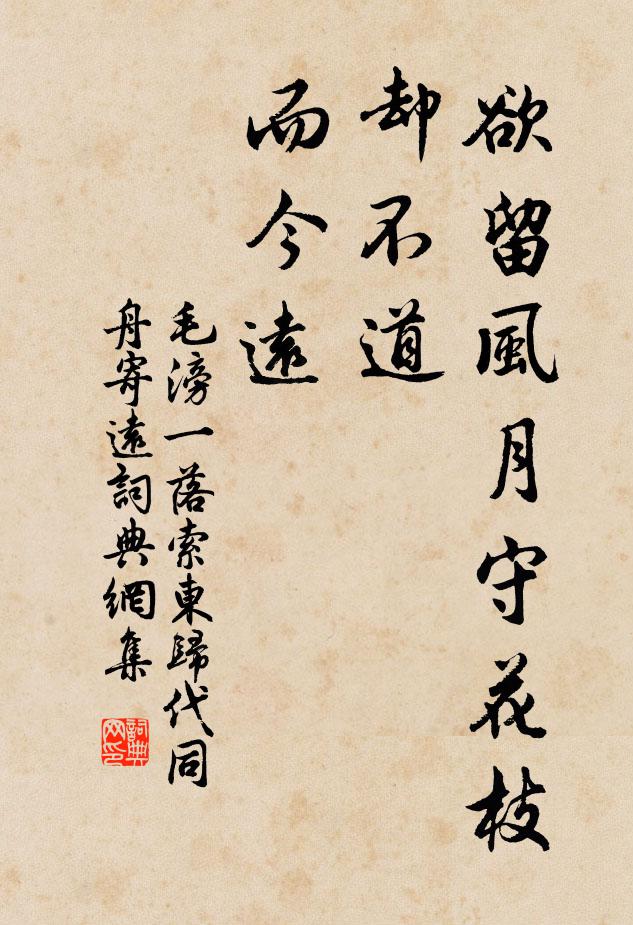 欲留風月守花枝
却不道
而今遠
毛滂一落索東歸代同
舟寄遠詞典網集
詞典
网印